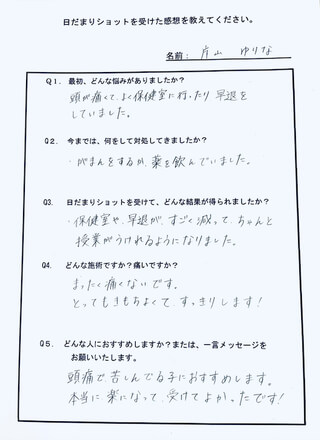 日だまりショットを受けた感想を教えてください。
名前: 片山 ゆりな
Q1. 最初、どんな悩みがありましたか?
頭が痛くて、よく保健室に行ったり早退を
していました。
Q2. 今までは、何をして対処してきましたか?
・がまんをするか、薬を飲んでいました。
Q3. 日だまりショットを受けて、どんな結果が得られましたか?
・保健室や、早退が、すごく減って、ちゃんと
授業がうけれるようになりました。
Q4. どんな施術ですか?痛いですか?
まったく痛くないです。
とってもきもちよくて、すっきりします!
Q5. どんな人におすすめしますか?または、一言メッセージを
お願いいたします。
頭痛で、苦しんでる子におすすめします。
本当に楽になって、受けてよかったです!